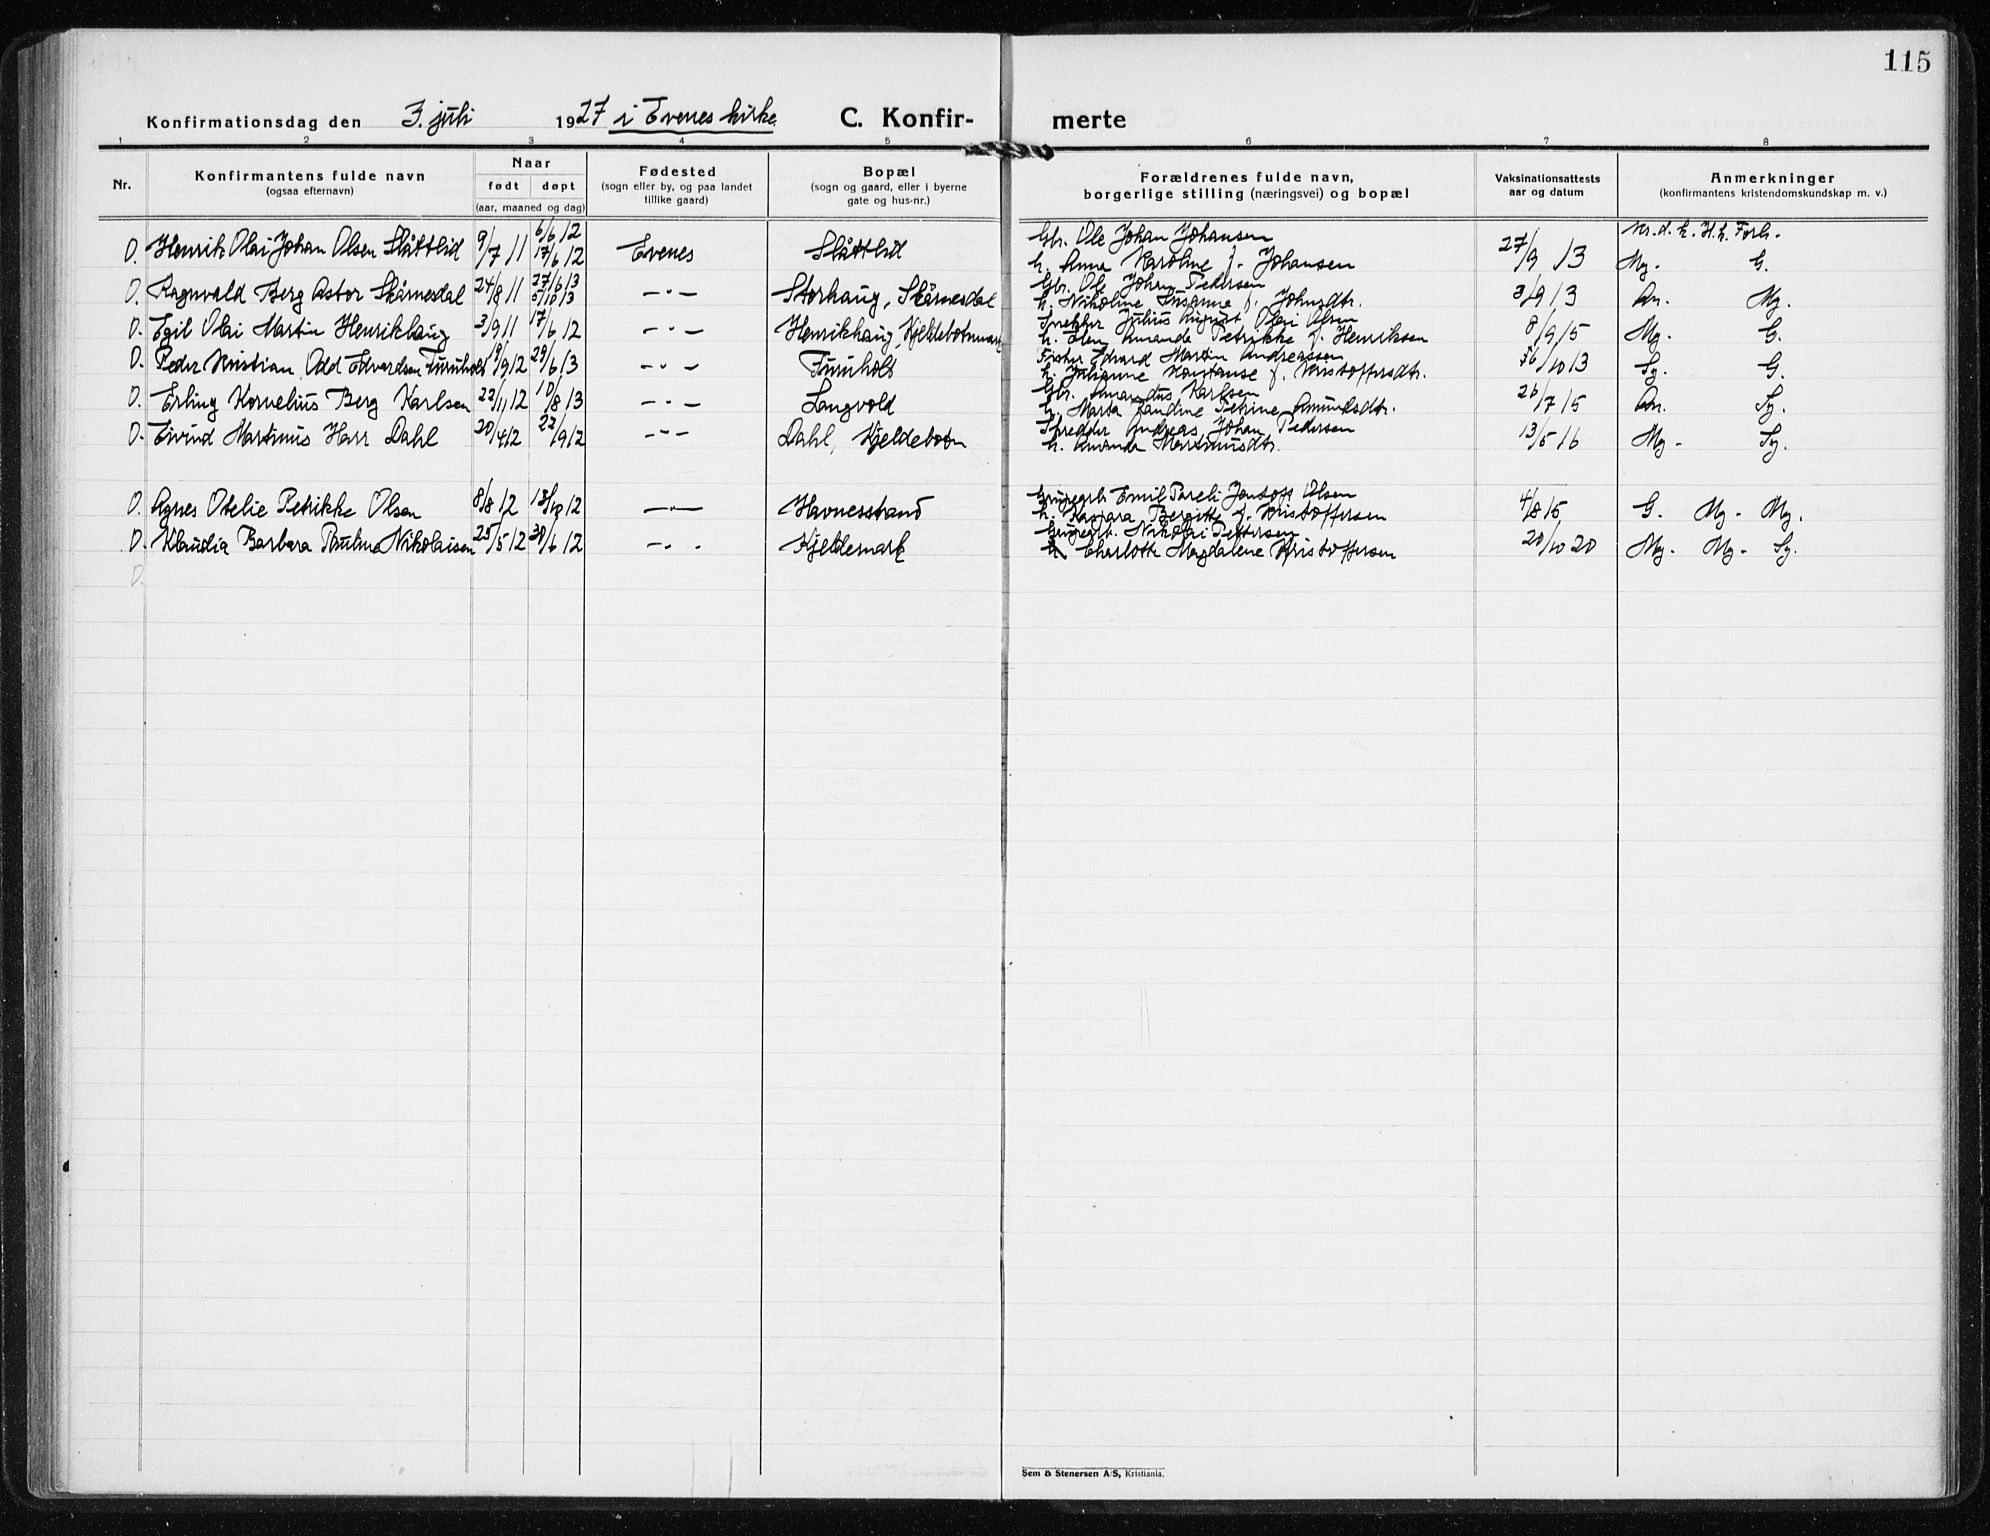 115
Konfirmationsdag den 3. juli 1927 i Evenes kirke. C. Konfir- merte
1 2 3 4 5 6 7 8
Nr. Konfirmantens fulde navn (ogsaa efternavn) Naar født døpt (aar, maaned og dag) Fødested (sogn eller by, og paa landet tillike gaard) Bopæl (sogn og gaard, eller i byerne gate og hus-nr.) Forældrenes fulde navn, borgerlige stilling (næringsvei) og bopæl Vaksinationsattests aar og datum Anmerkninger (konfirmantens kristendomskundskap m. v.)
6/6 12 Gbr. Ole Johan Johansen Kr. d. k. H. h. Forh.
D. Henrik Olai Johan Olsen Slåttlid 9/7 11 17/6 12 Evenes Slåttlid h. Anna Karoline f. Johansen 27/9 13 Mg. G.
27/6 13 Gbr. Ole Johan Pedersen
D. Ragnvald Berg Astor Skårnesdal 24/8 11 5/10 13 -"- Storhaug, Skårnesdal h. Nikoline Susanne f. Johnsdtr. 3/9 13 An. Mg.
Snekker Julius August Olai Olsen
D. Egil Olai Martin Henrikhaug 3/9 11 17/6 12 -"- Henrikhaug, Kjeldebotnmark h. Elen Amanda Petrikke f. Henriksen 8/9 15 Mg. G.
Fisker Edvard Martin Andreassen
D. Peder Kristian Odd Edvardsen Furuholt 9/9 12 29/6 13 -"- Furuholt h. Julianne Konstanse f. Kristoffersdtr. 16/10 13 Sg. G.
Gbr. Amandus Karlsen
D. Erling Kornelius Berg Karlsen 22/11 12 10/8 13 -"- Langvold h. Marta Jandine Petrine Amundsdtr. 26/7 15 An. Sg.
Andreas Johan Pedersen
D. Eivind Martinus Harr Dahl 20/4 12 22/9 12 -"- Dahl, Kjeldebotn h. Amanda Martinusdtr. 13/5 16 Mg. Sg.
Grugearb. Emil Pareli Jentoft Olsen
D. Agnes Otelie Petrikke Olsen 8/8 12 13/10 12 -"- Havnesstrand h. Bergitte f. Kristoffersen 4/8 15 G. Mg. Mg.
Grugearb. Nikolai Pettersen
D. Klaudia Barbara Pauline Nikolaisen 25/5 12 30/6 12 -"- Kjeldemark h. Charlotte Magdalene Kristoffersen 20/10 20 Mg. Mg. Sg.
D.
Sem & Stenersen A/S, Kristiania.